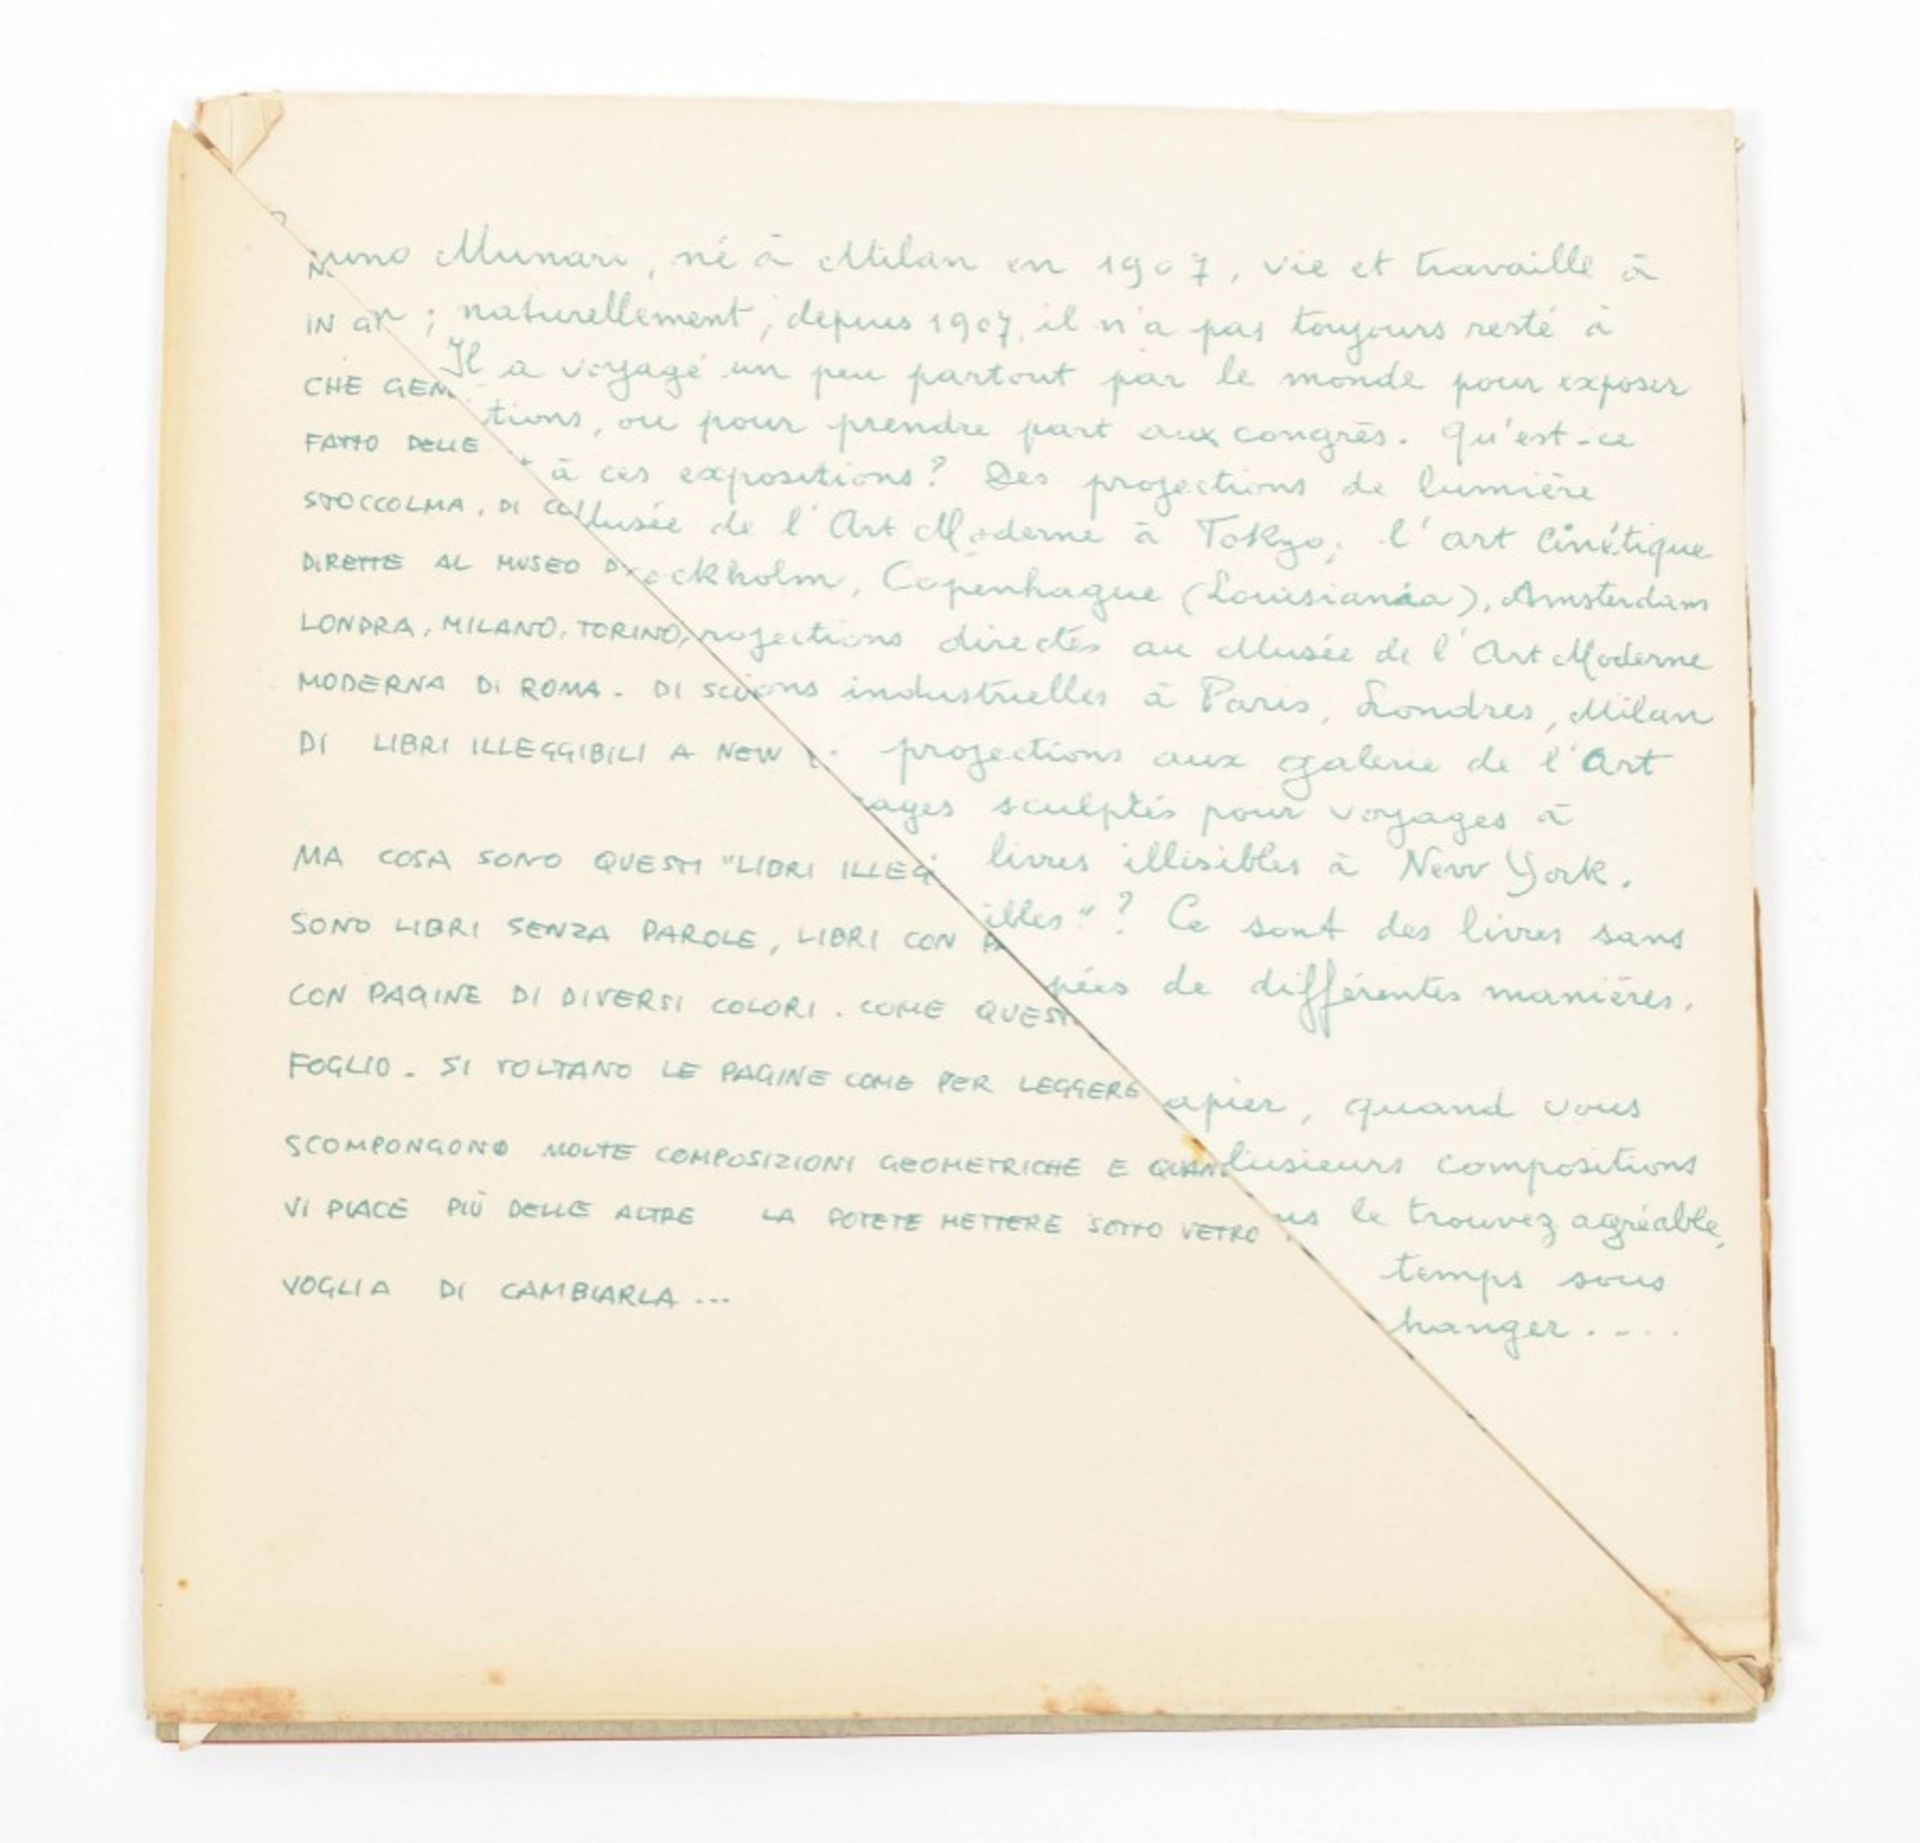 uno Munari, né à Milan en 1907, vie et travaille à
; naturellement, depuis 1907, il n'a pas toujours resté à
Il a voyagé un peu partout par le monde pour exposer
tions, ou pour prendre part aux congrès. Qu'est-ce
à ces expositions? Des projections de lumière
Musée de l'Art Moderne à Tokyo; l'art Cinétique
ockholm, Copenhague (Louisiania), Amsterdam
rojections directes au Musée de l'Art Moderne
ions industrielles à Paris, Londres, Milan
projections aux galerie de l'Art
ages sculptés pour voyages à
livres illisibles à New York.
ibles"? Ce sont des livres sans
pées de différentes manières.
apier, quand vous
lusieurs compositions
us le trouvez agréable,
temps sous
hanger....
IN
CHE GEN
FATTO DELLE
STOCCOLMA, DI
DIRETTE AL MUSEO D
LONDRA, MILANO, TORINO,
MODERNA DI ROMA - DI SC
DI LIBRI ILLEGGIBILI A NEW
MA COSA SONO QUESTI "LIBRI ILLEG
SONO LIBRI SENZA PAROLE, LIBRI CON PA
CON PAGINE DI DIVERSI COLORI. COME QUEST
FOGLIO. SI VOLTANO LE PAGINE COME PER LEGGERE
SCOMPONGONO MOLTE COMPOSIZIONI GEOMETRICHE E QUAND
VI PIACE PIÙ DELLE ALTRE LA POTETE METTERE SOTTO VETRO
VOGLIA DI CAMBIARLA ...